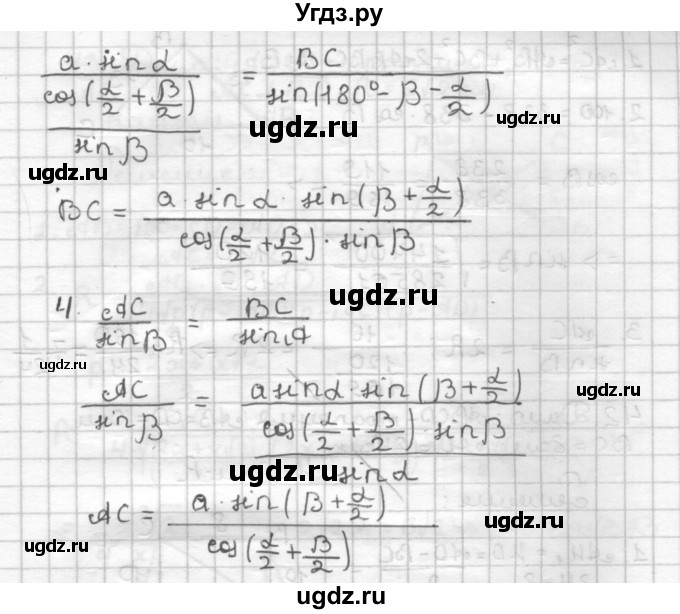 Угдз.ру
(a · sin α / cos(α/2 + β/2)) / sin β = BC / sin(180° - β - α/2)
ugdz.ru
ugdz.ru
ugdz.ru
BC = a · sin α · sin(β + α/2) / cos(α/2 + β/2) · sin β
ugdz.ru
4. AC / sin β = BC / sin A
ugdz.ru
ugdz.ru
AC / sin β = (a sin α · sin(β + α/2) / cos(α/2 + β/2) · sin β) / sin α
ugdz.ru
AC = a · sin(β + α/2) / cos(α/2 + β/2)
ugdz.ru
ugdz.ru
ugdz.ru
ugdz.ru